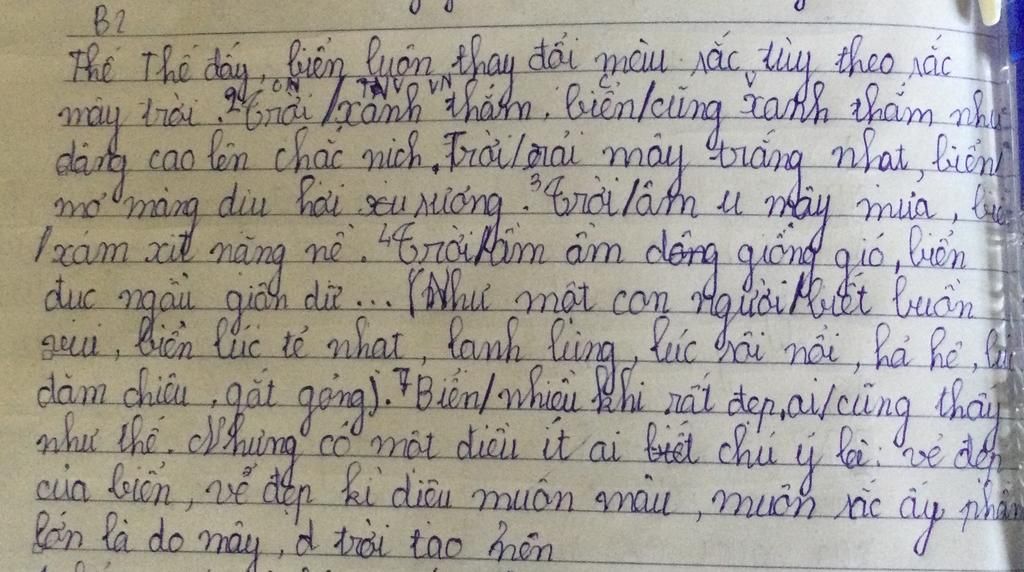 B2
Thế Thế đấy, biển luôn thay đổi màu sắc tùy theo sắc
mây trời. 2 Trời / xanh thẳm, biển / cũng xanh thẳm như
dâng cao lên chắc nịch. Trời / rải mây trắng nhạt, biển /
mơ màng dịu hơi sương. 3 Trời / âm u mây mưa,
/ xám xịt nặng nề. 4 Trời / ầm ầm dông giông gió, biển
đục ngầu giận dữ... (Như một con người / biết buồn
vui, biển lúc tẻ nhạt, lạnh lùng, lúc sôi nổi, hả hê,
đăm chiêu, gắt gỏng). 7 Biển / nhiều khi rất đẹp, ai / cũng thấy
như thế. Nhưng có một điều ít ai biết chú ý là: vẻ đẹp
của biển, vẻ đẹp kì diệu muôn màu, muôn sắc ấy phần
lớn là do mây, trời tạo nên